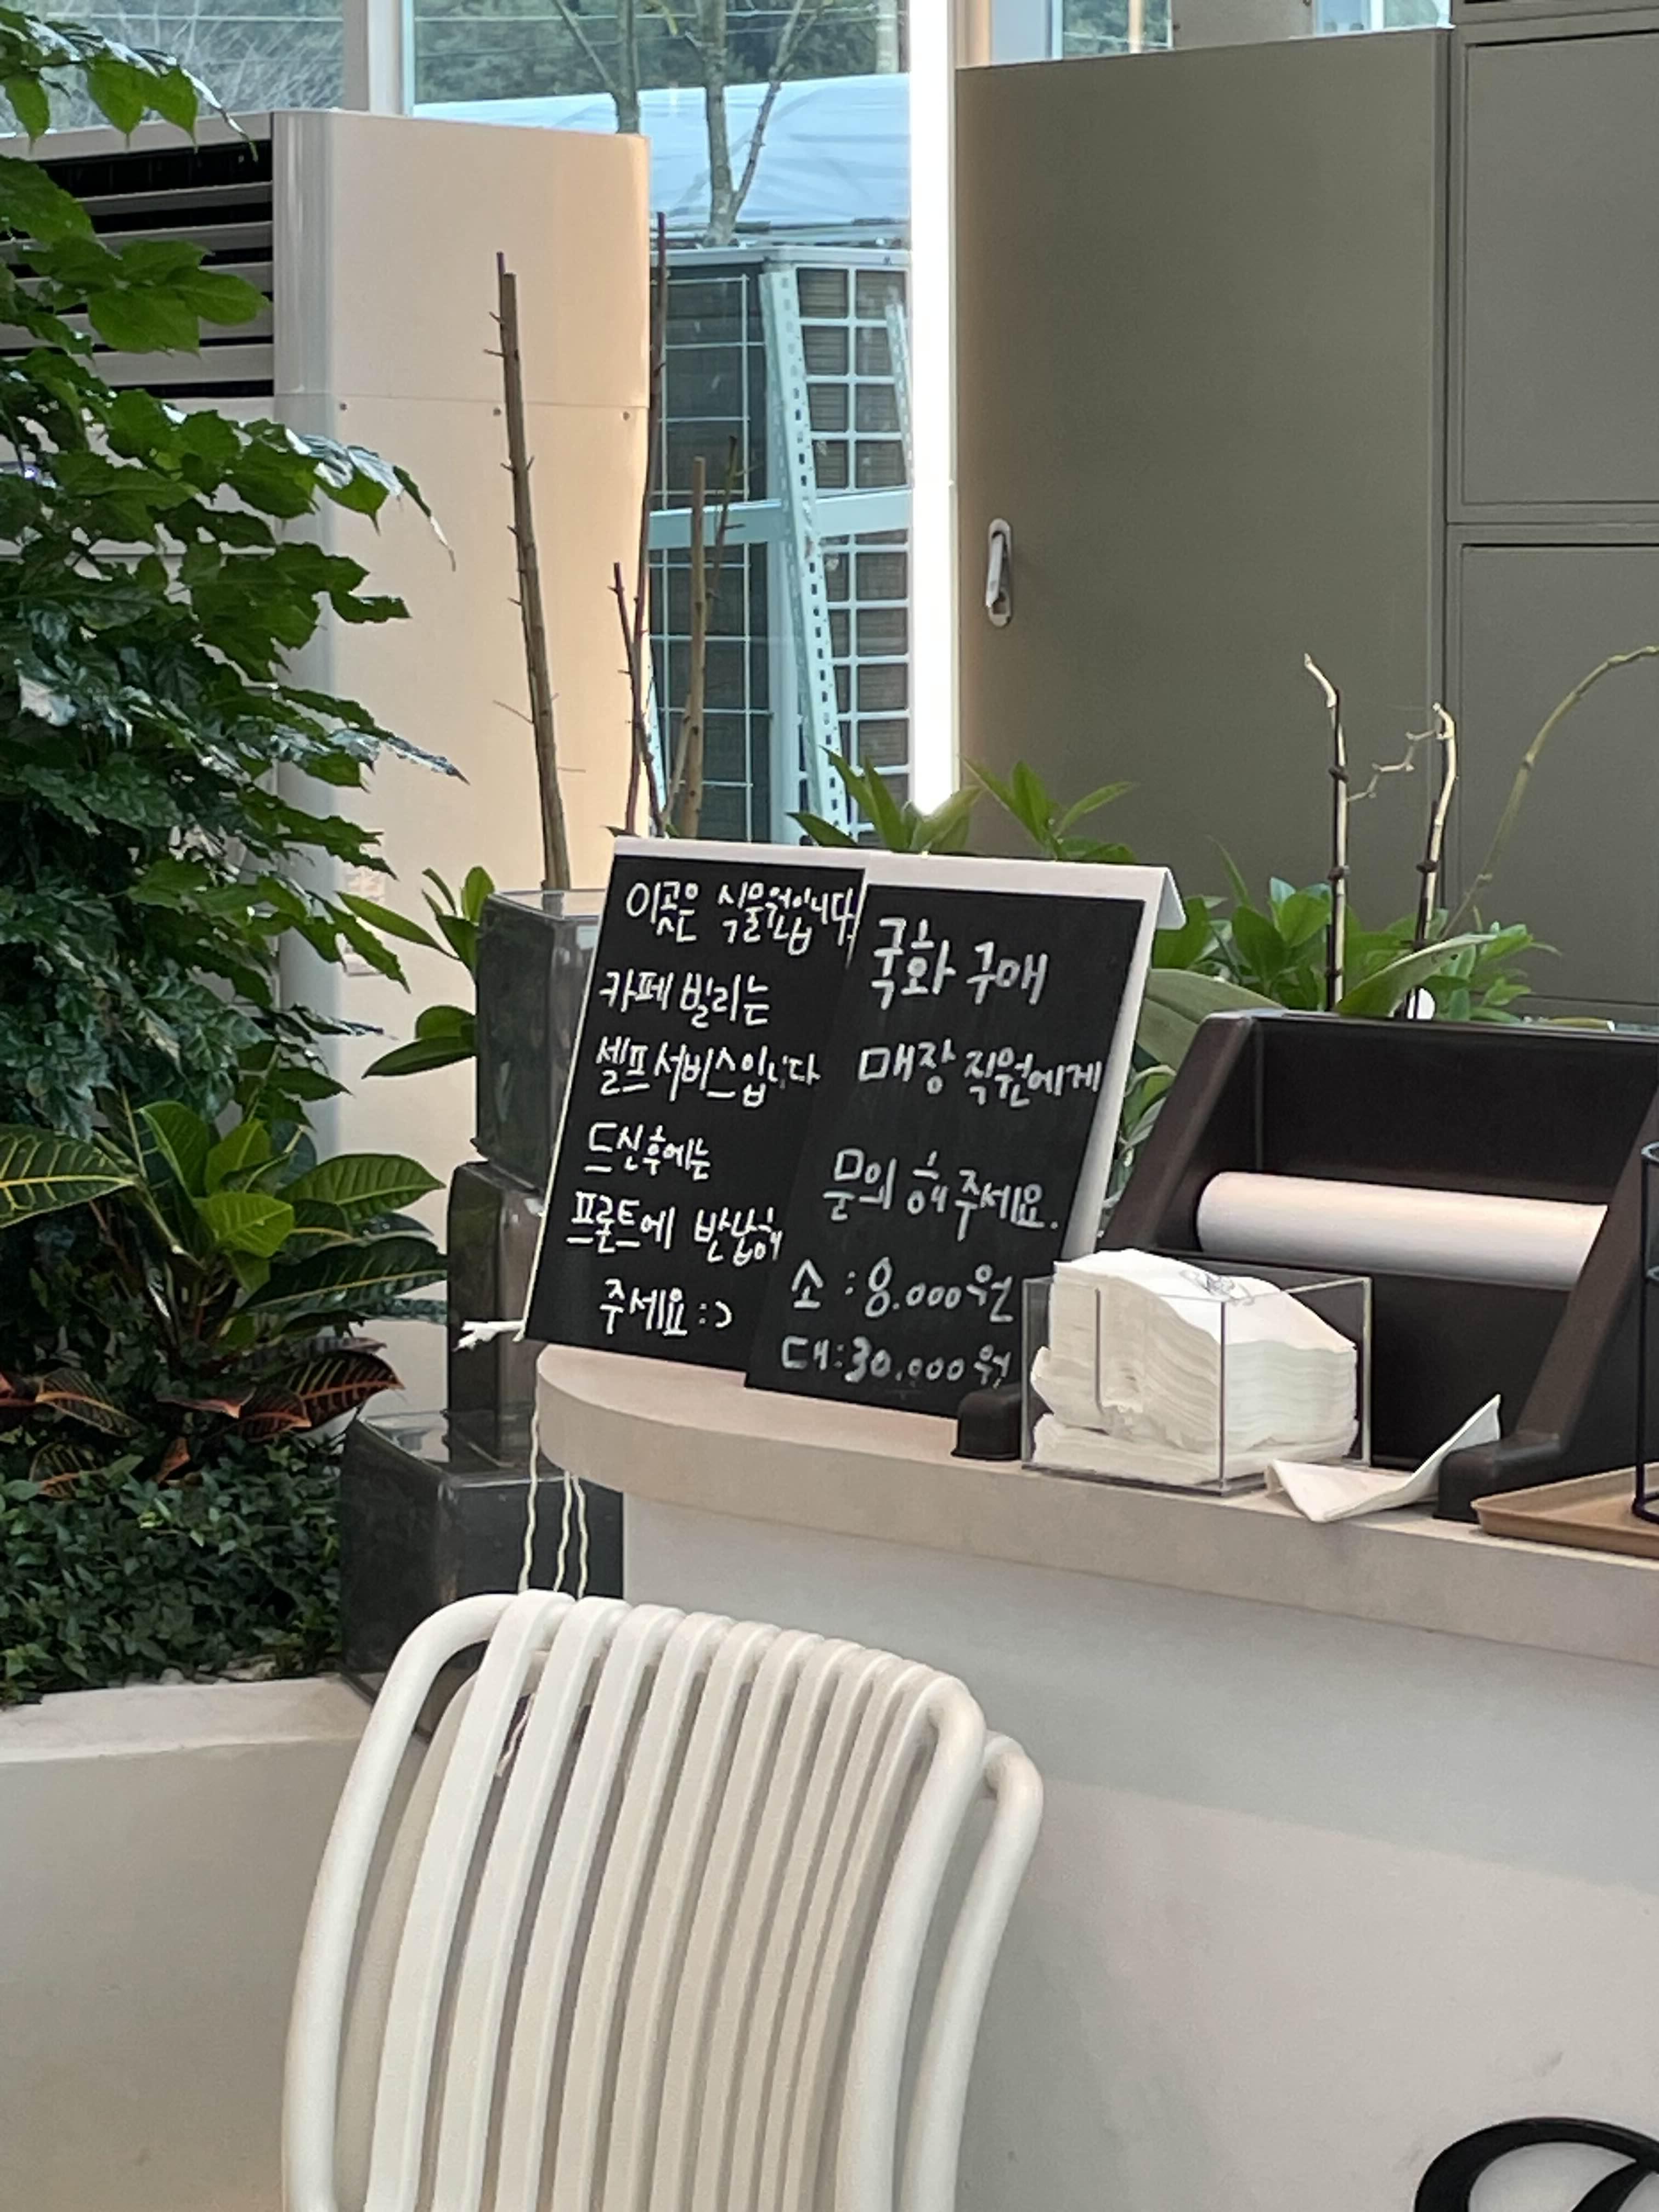 이곳은 식물원입니다.
카페 빌리는
셀프서비스입니다
드신후에는
프론트에 반납해
주세요 :)
국화 구매
매장 직원에게
문의 해주세요.
소 : 8.000원
대 : 30.000원